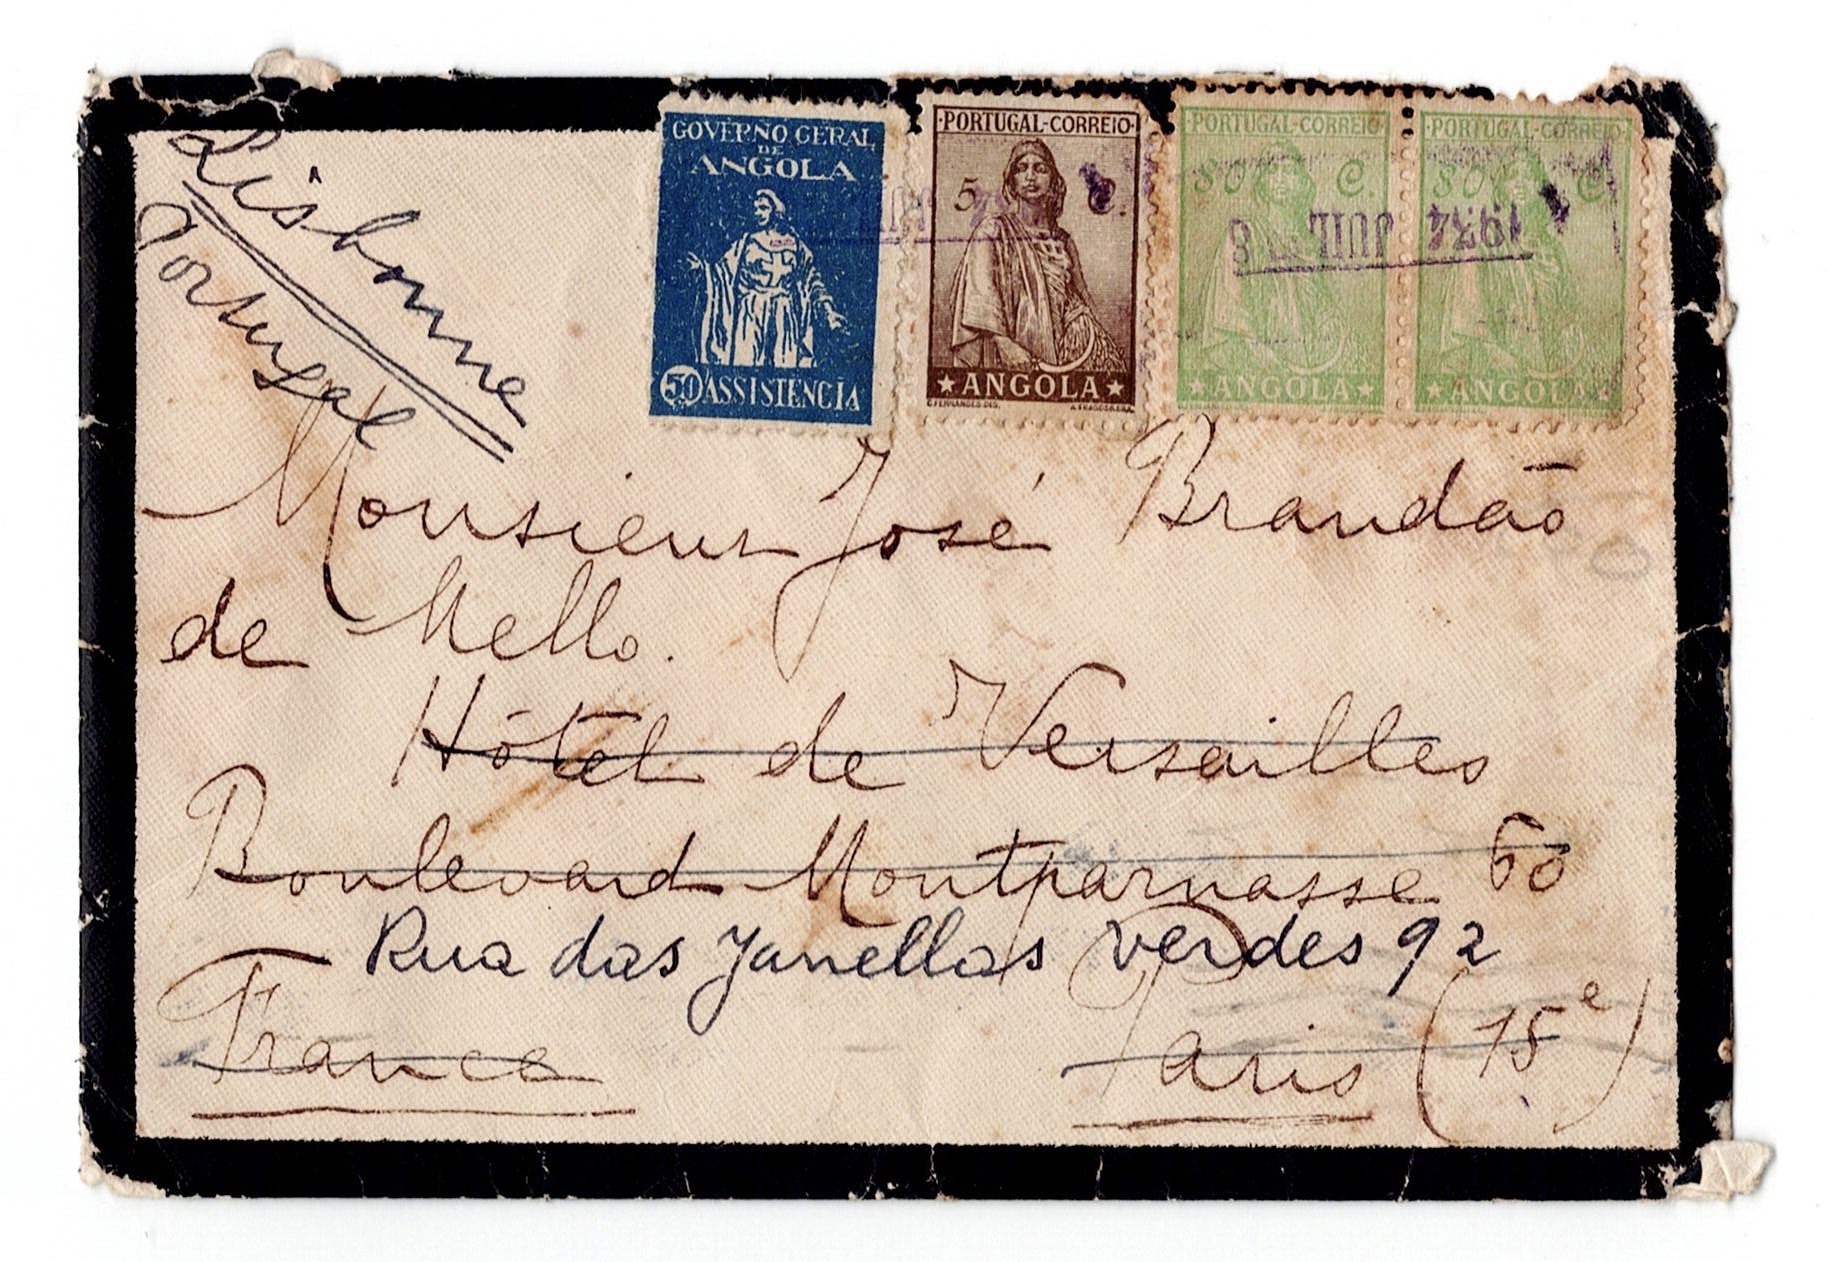 Lisbonne
Portugal
GOVERNO GERAL
DE
ANGOLA
50 ASSISTENCIA
PORTUGAL-CORREIO
5 C.
ANGOLA
C. FERNANDES DES.
PORTUGAL-CORREIO
80 C.
ANGOLA
PORTUGAL-CORREIO
80 C.
ANGOLA
8 JUIL 1934
Monsieur José Brandão
de Mello.
Hôtel de Versailles
Boulevard Montparnasse 60
Rua das Janellas verdes 92
France Paris (15e)